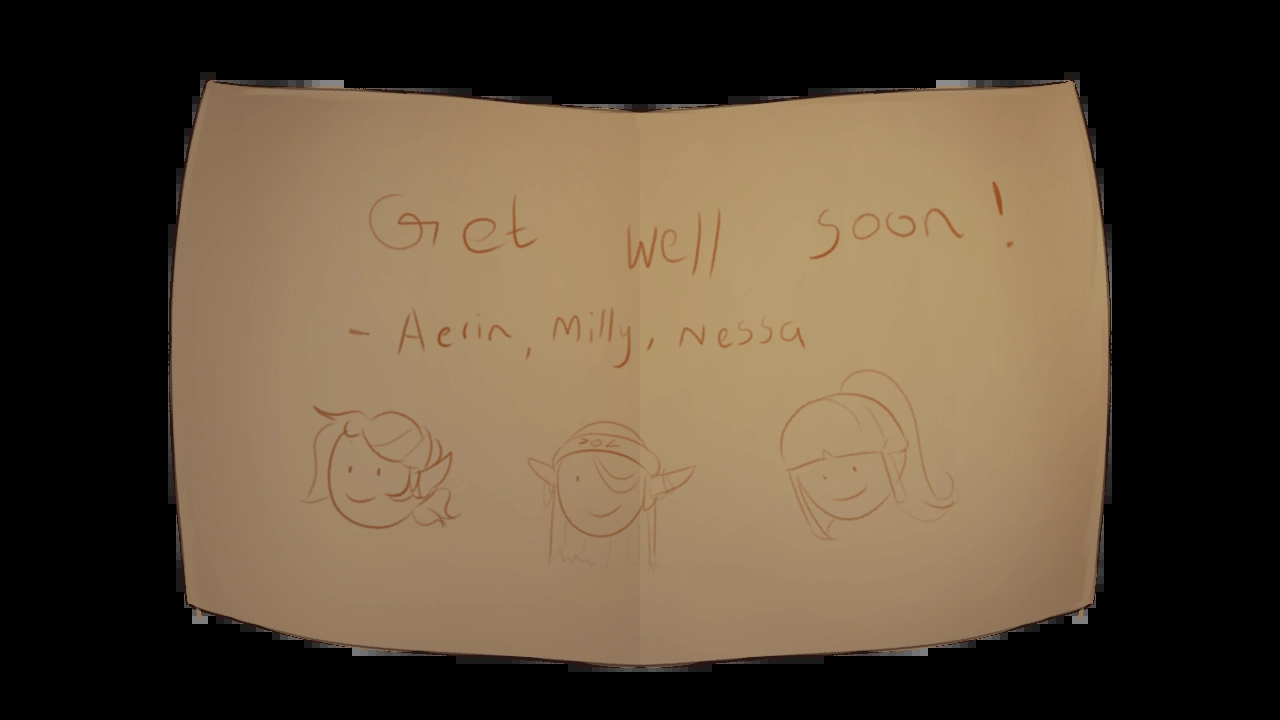 Get well soon!
- Aerin, Milly, Nessa